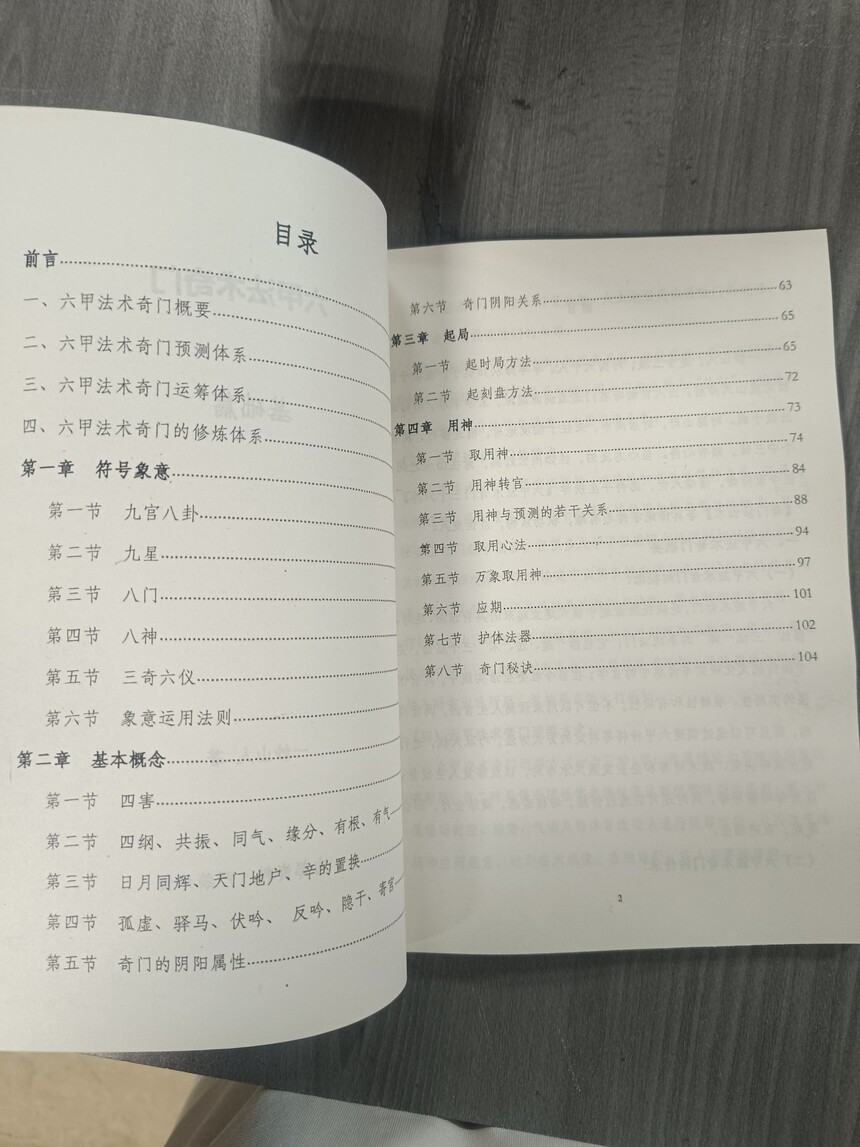 目录
前言
一、六甲法术奇门概要
二、六甲法术奇门预测体系
三、六甲法术奇门运筹体系
四、六甲法术奇门的修炼体系
第一章 符号象意
第一节 九宫八卦
第二节 九星
第三节 八门
第四节 八神
第五节 三奇六仪
第六节 象意运用法则
第二章 基本概念
第一节 四害
第二节 四纲、共振、同气、缘分、有根、有气
第三节 日月同辉、天门地户、辛的置换
第四节 孤虚、驿马、伏吟、反吟、隐干、寄宫
第五节 奇门的阴阳属性
第六节 奇门阴阳关系 63
第三章 起局 65
第一节 起时局方法 65
第二节 起刻盘方法 72
第四章 用神 73
第一节 取用神 74
第二节 用神转宫 84
第三节 用神与预测的若干关系 88
第四节 取用心法 94
第五节 万象取用神 97
第六节 应期 101
第七节 护体法器 102
第八节 奇门秘诀 104
2